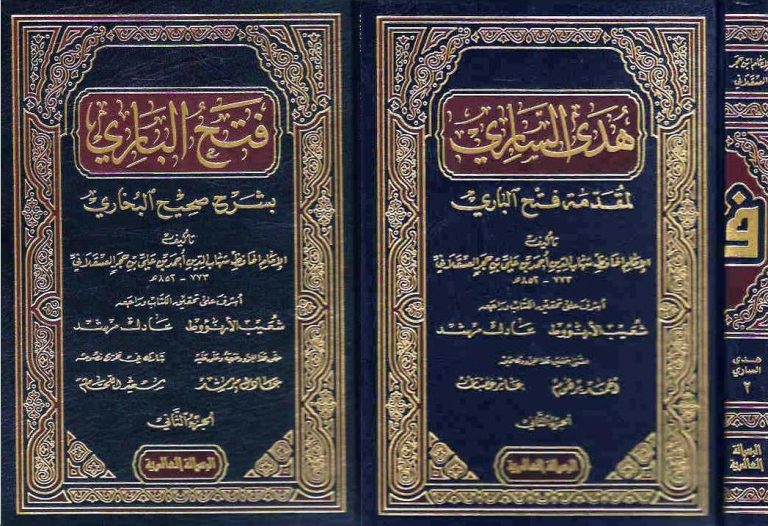 فتح الباري
بشرح صحيح البخاري
تأليف
الإمام الحافظ شهاب الدين أحمد بن علي بن حجر العسقلاني
٧٧٣ - ٨٥٢هـ
أشرف على تحقيق الكتاب وراجعه
شعيب الأرنؤوط عادل مرشد
عادل مرشد
الجزء الثاني
الرسالة العالمية
هدى الساري
لمقدمة فتح الباري
تأليف
الإمام الحافظ شهاب الدين أحمد بن علي بن حجر العسقلاني
٧٧٣ - ٨٥٢هـ
أشرف على تحقيق الكتاب وراجعه
شعيب الأرنؤوط عادل مرشد
الجزء الثاني
الرسالة العالمية
الإمام ابن حجر
العسقلاني
هدى
الساري
٢
الرسالة
العالمية